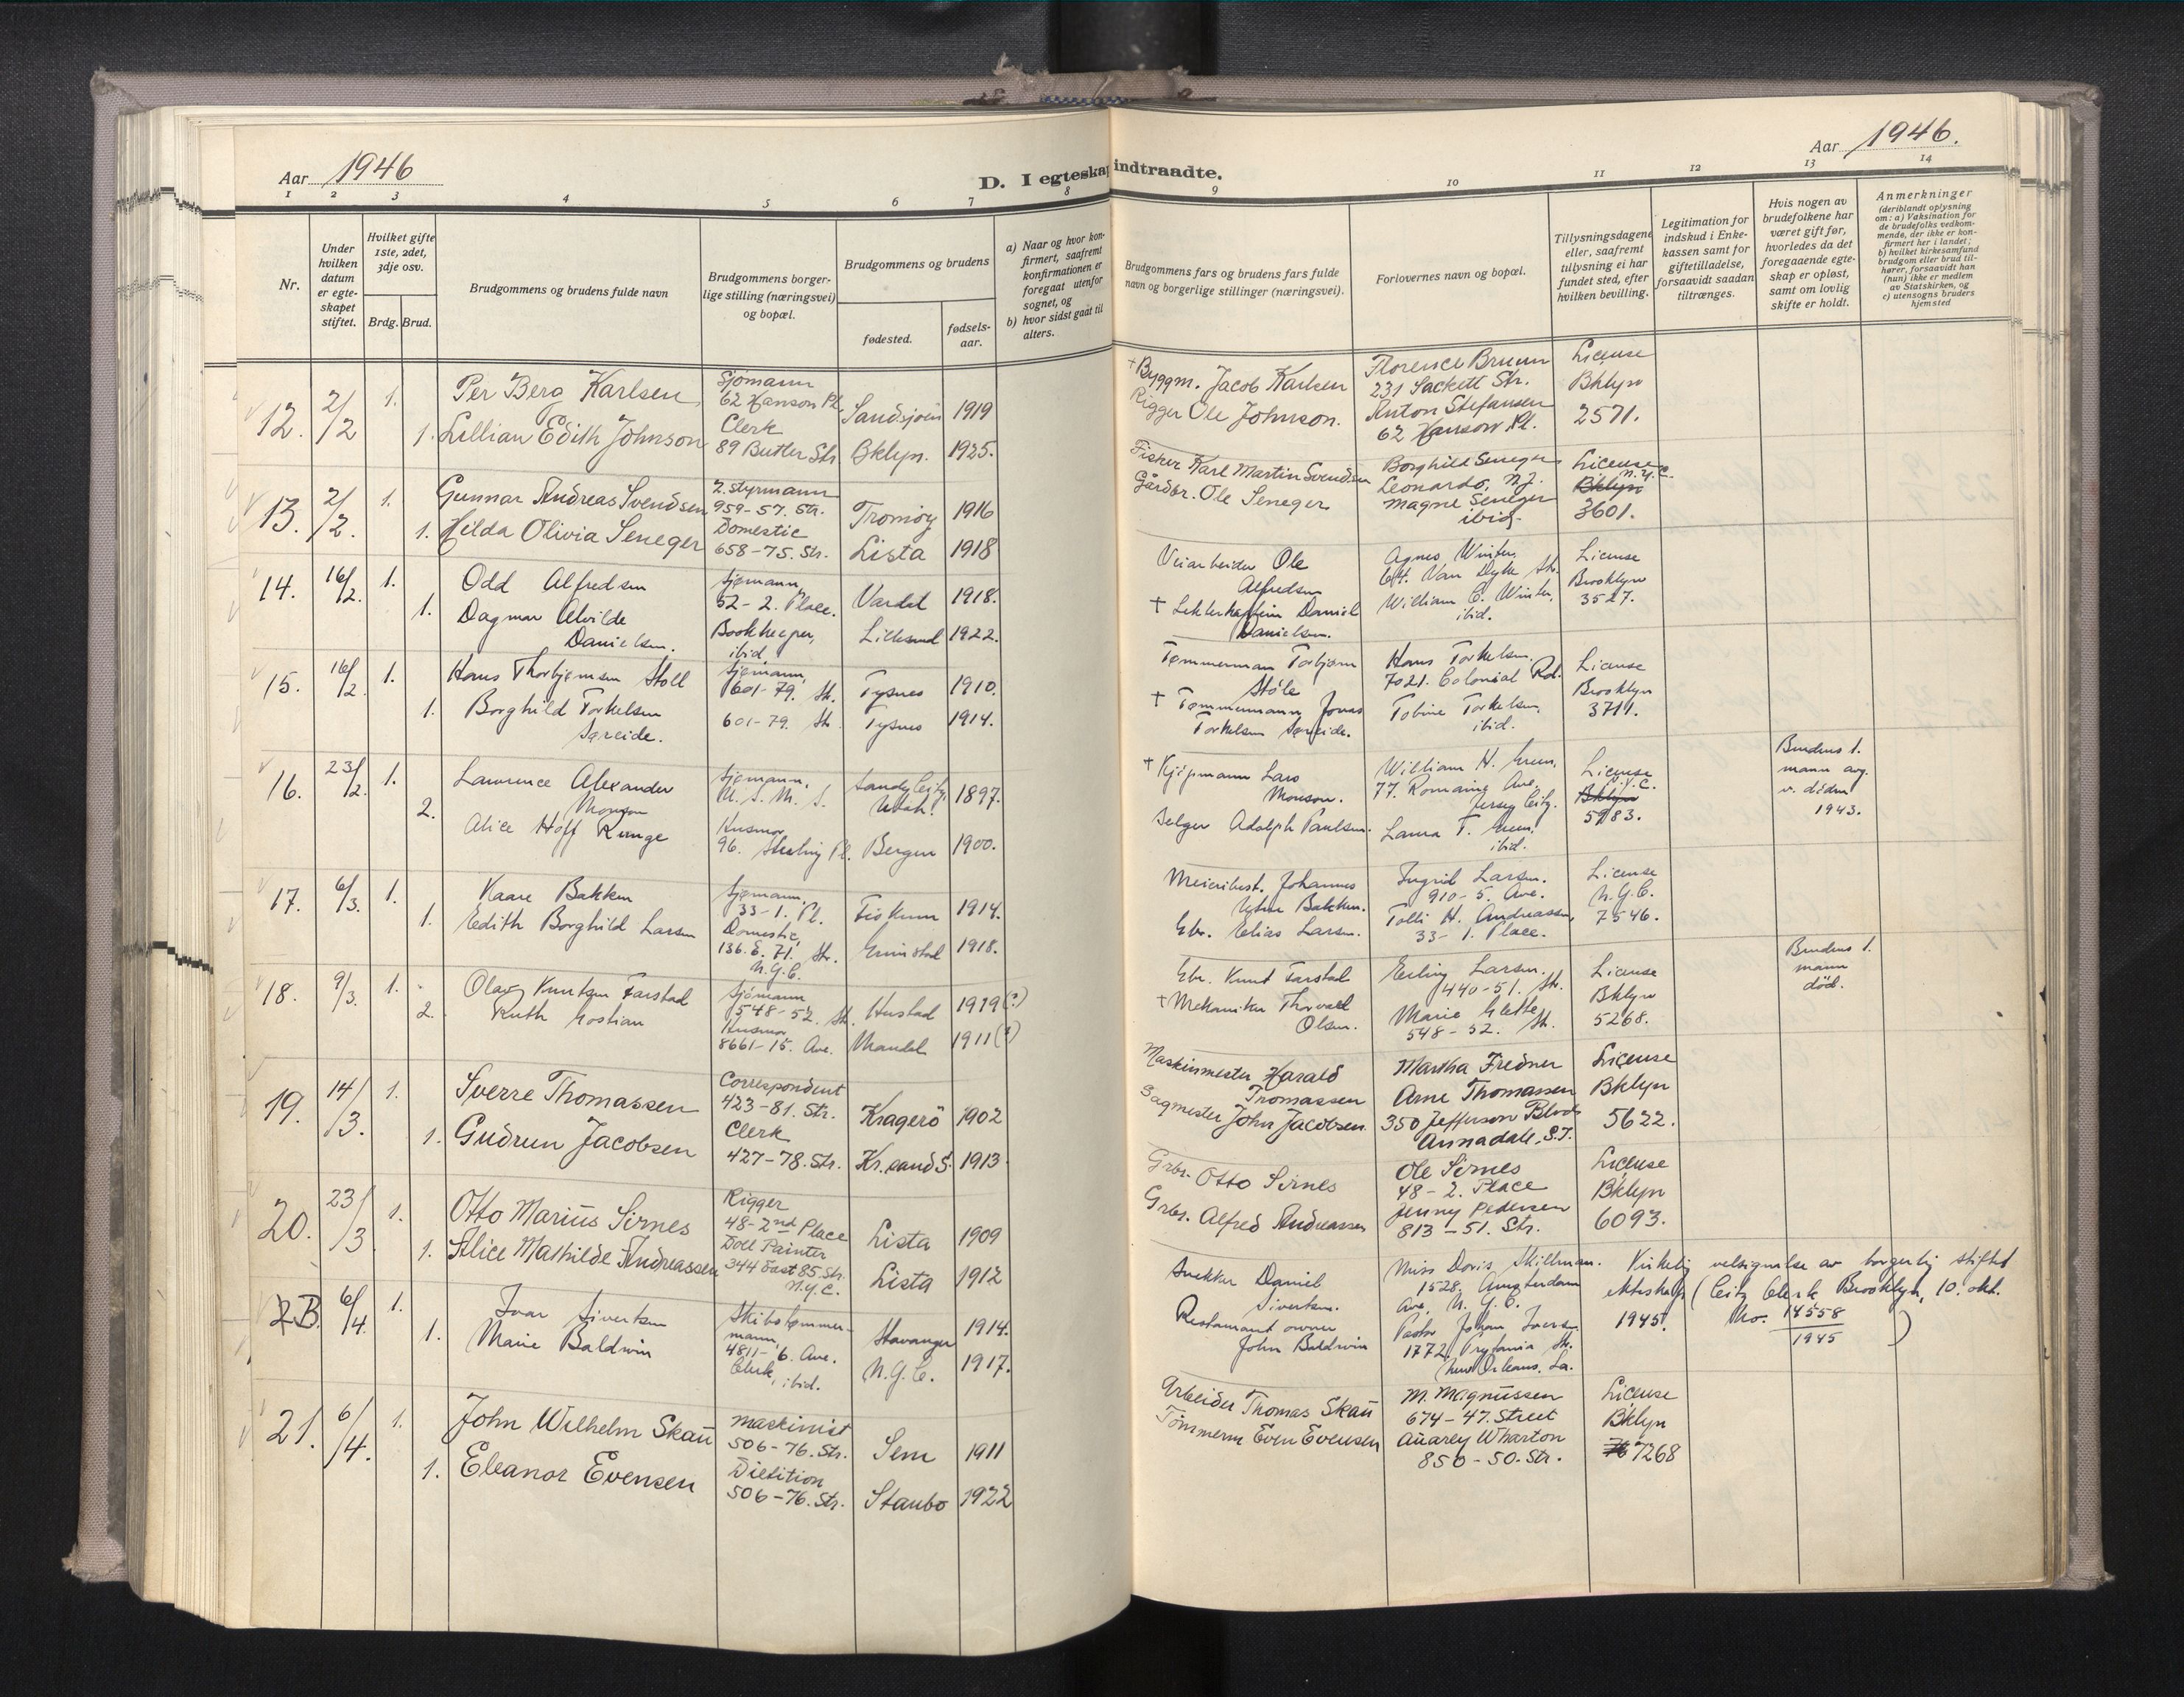 Aar 1946
D. I egteskap indtraadte.
Aar 1946.
1 2 3 4 5 6 7 8 9 10 11 12 13 14
Nr.
Under hvilken datum er egteskapet stiftet.
Hvilket gifte 1ste, 2det, 3dje osv.
Brdg. Brud.
Brudgommens og brudens fulde navn
Brudgommens borgerlige stilling (næringsvei) og bopæl.
Brudgommens og brudens
fødested.
fødselsaar.
a) Naar og hvor konfirmert, saafremt konfirmationen er foregaat utenfor sognet, og
b) hvor sidst gaat til alters.
Brudgommens fars og brudens fars fulde navn og borgerlige stillinger (næringsvei).
Forlovernes navn og bopæl.
Tillysningsdagene eller, saafremt tillysning ei har fundet sted, efter hvilken bevilling.
Legitimation for indskud i Enkekassen samt for giftetilladelse, forsaavidt saadan tiltrænges.
Hvis nogen av brudefolkene har været gift før, hvorledes da det foregaaende egteskap er opløst, samt om lovlig skifte er holdt.
Anmerkninger
(deriblandt oplysning om: a) Vaksination for de brudefolks vedkommende, der ikke er konfirmert her i landet; b) hvilket kirkesamfund brudgom eller brud tilhører, forsaavidt han (hun) ikke er medlem av Statskirken, og c) utensogns bruders hjemsted
12. 2/2 1. Per Berg Karlsen Sjømann 62 Hanson Pl. Sandsjøen 1919
1. Lillian Edith Johnson Clerk 89 Butler Str Bklyn. 1925.
+ Byggm. Jacob Karlsen
Rigger Ole Johnson.
Florence Bruun
231 Sackett Str.
Anton Stefansen
62 Hanson Pl.
License
Bklyn
2571.
13. 2/2. 1. Gunnar Andreas Svendsen 2. styrmann 959-57. Str. Tromøy 1916
1. Hilda Olivia Seneger Domestic 658-75. Str. Lista 1918
Fisker Karl Martin Svendsen
Gårdbr. Ole Seneger
Borghild Seneger
Leonardo, N.J.
Magne Seneger
ibid.
License
N.Y.C.
Bklyn
3601.
14. 16/2. 1. Odd Alfredsen Sjømann, 52-2. Place. Vardø 1918.
1. Dagmar Alvilde Danielsen. Bookkeeper, ibid. Lillesand 1922.
Veiarbeider Ole
Alfredsen
+ Lekterkaptein Daniel
Danielsen.
Agnes Winter,
64. Van Dyke Str.
William C. Winter,
ibid.
License
Brooklyn
3527.
15. 16/2. 1. Hans Thorbjørnsen Støll Sjømann, 601-79. Str. Tysnes 1910.
1. Borghild Torkelsen Søreide. 601-79. Str. Tysnes 1914.
Tømmermann Torbjørn
Støle
+ Tømmermann Jonas
Torkelsen Søreide.
Hans Torkelsen,
7021. Colonial Rd.
Tobine Torkelsen,
ibid.
License
Brooklyn
3711.
16. 23/2. 1. Lawrence Alexander Monson Sjømann, U.S.M.S. Sandy City, Utah. 1897.
2. Alice Hoff Runge Husmor 96. Sterling Pl. Bergen 1900.
+ Kjøpmann Lars
Monson.
Selger Adolph Paulsen.
William H.
77. Romaine Ave.,
Jersey City.
Laura T.
ibid.
License
N.Y.C.
Bklyn
5983.
Brudens 1.
mann avg.
v. døden
1943.
17. 6/3. 1. Kaare Bakken Sjømann, 33-1. Pl. Fiskum 1914.
1. Edith Borghild Larsen Domestic, 136. E. 71. Str. N.Y.C. Grimstad 1918.
Meieribest. Johannes
Bakken.
Gbr. Elias Larsen.
Ingrid Larsen.
910-5. Ave.
Tolli H. Andreassen,
33-1. Place.
License
N.Y.C.
7546.
18. 9/3. 1. Olav Knutsen Farstad Sjømann 548-52. Str. Hustad 1919(?)
2. Ruth Husmor 8661-15. Ave. Mandal 1911(?)
Gbr. Knut Farstad
+ Mekaniker Thorvald
Olsen.
Erling Larsen.
440-51. Str.
Marie Glette,
548-52. Str.
License
Bklyn
5268.
Brudens 1.
mann
død.
19. 14/3. 1. Sverre Thomassen Correspondent 423-81. Str. Kragerø 1902
1. Gudrun Jacobsen Clerk 427-78. Str. Kr.sand S. 1913
Maskinmester Harald
Thomassen
Sagmester John Jacobsen
Martha Fredner
Arne Thomassen
350 Jefferson Blvd
Annadale, S.I.
License
Bklyn
5622.
20. 23/3 1. Otto Marius Sirnes Rigger 48-2nd Place Lista 1909
1. Alice Mathilde Andreassen Doll Painter 344 East 85. Str. N.Y.C. Lista 1912
Grbr. Otto Sirnes
Grbr. Alfred Andreassen
Ole Sirnes
48-2. Place
Jenny Pedersen
813-51. Str.
License
Bklyn
6093.
2B. 6/4. 1. Ivar Sivertsen Skibstømmermann, 4811-6. Ave. Stavanger 1914.
1. Marie Baldwin Clerk, ibid. N.Y.C. 1917.
Snekker Daniel
Sivertsen.
Restaurant owner
John Baldwin
Miss Doris Skillman.
1528, Amsterdam
Ave, N.Y.C.
Pastor Johan Iversen
1772, Prytania Str.
New Orleans, La.
Kirkelig velsignelse av borgerlig stiftet
ekteskap (City Clerk Brooklyn, 10. okt.
1945. No. 14558/1945)
21. 6/4. 1. John Wilhelm Skau Maskinist 506-76. Str. Sem 1911
1. Eleanor Evensen Dietition 506-76. Str. Staubo 1922
Arbeider Thomas Skau
Tømmerm Even Evensen
M. Magnussen
674-47. Street
Audrey Wharton
850-50. Str.
License
Bklyn
7268